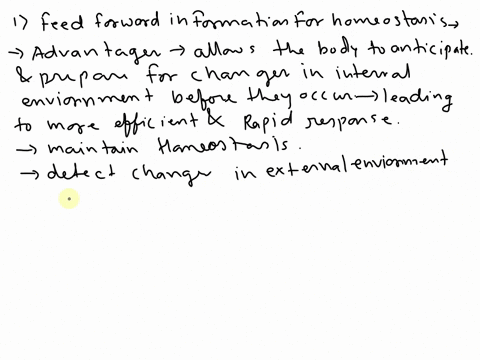 1) Feed forward information for homeostasis →
→ Advantager → allows the body to anticipate.
& prepare for changer in interal
enviornment before they occur → leading
to more efficient & Rapid response.
→ maintain Homeostasis.
→ detect changer in external enviornment